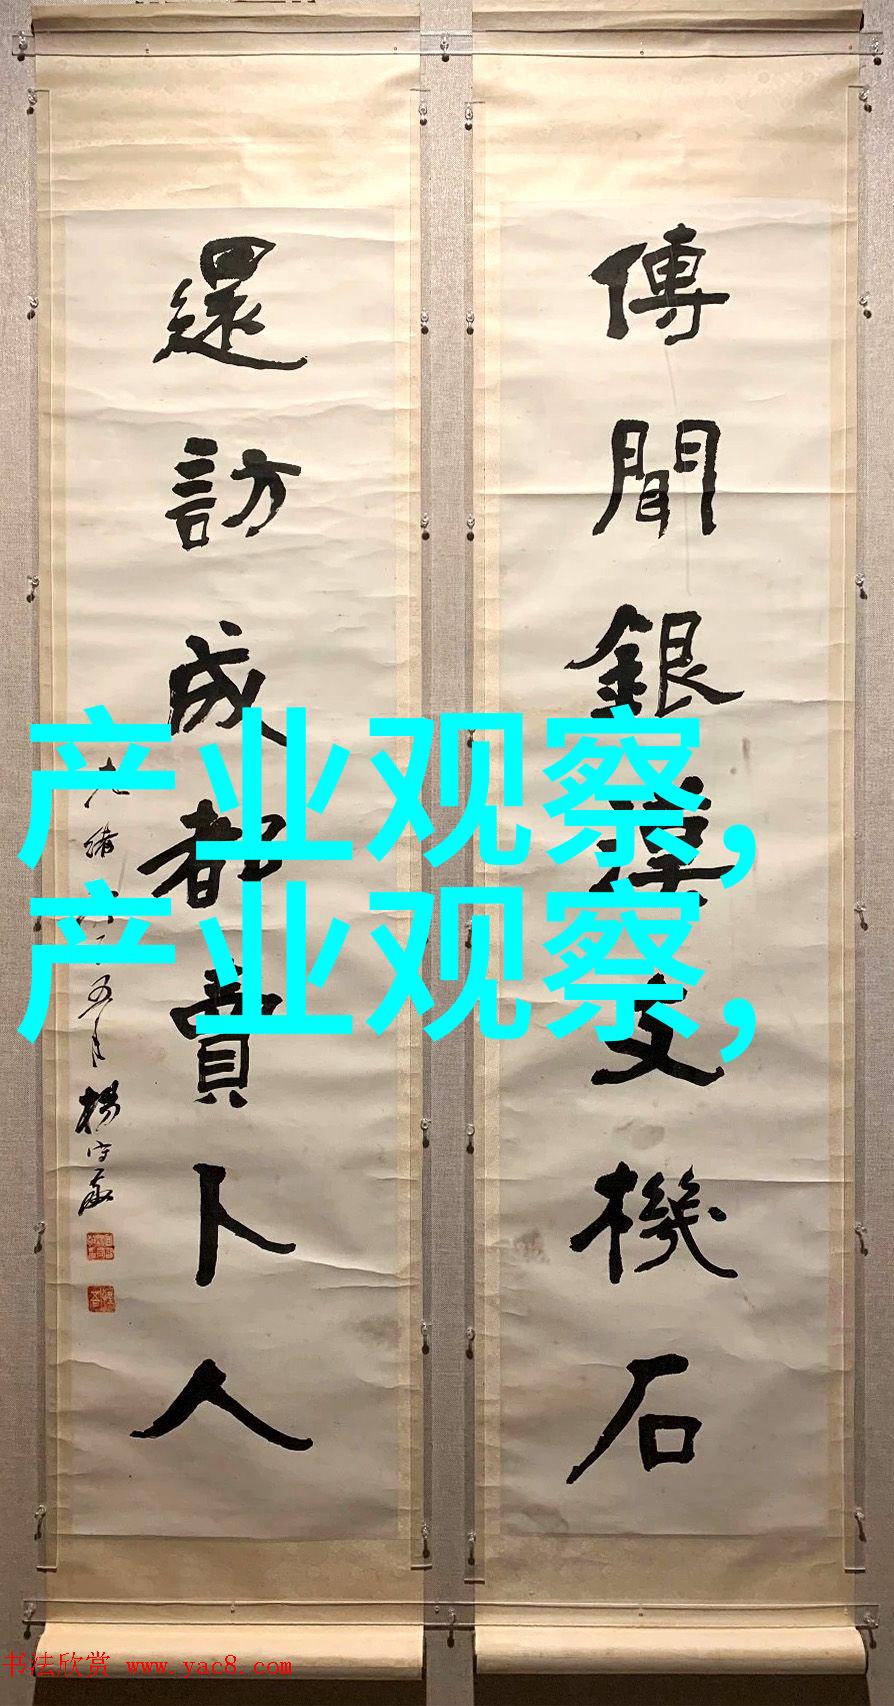 傳聞銀漢支機石
還訪成都賣卜人
光緒
五月
楊守敬
产业观察,
产业观察,
书法欣赏 www.yac8.com